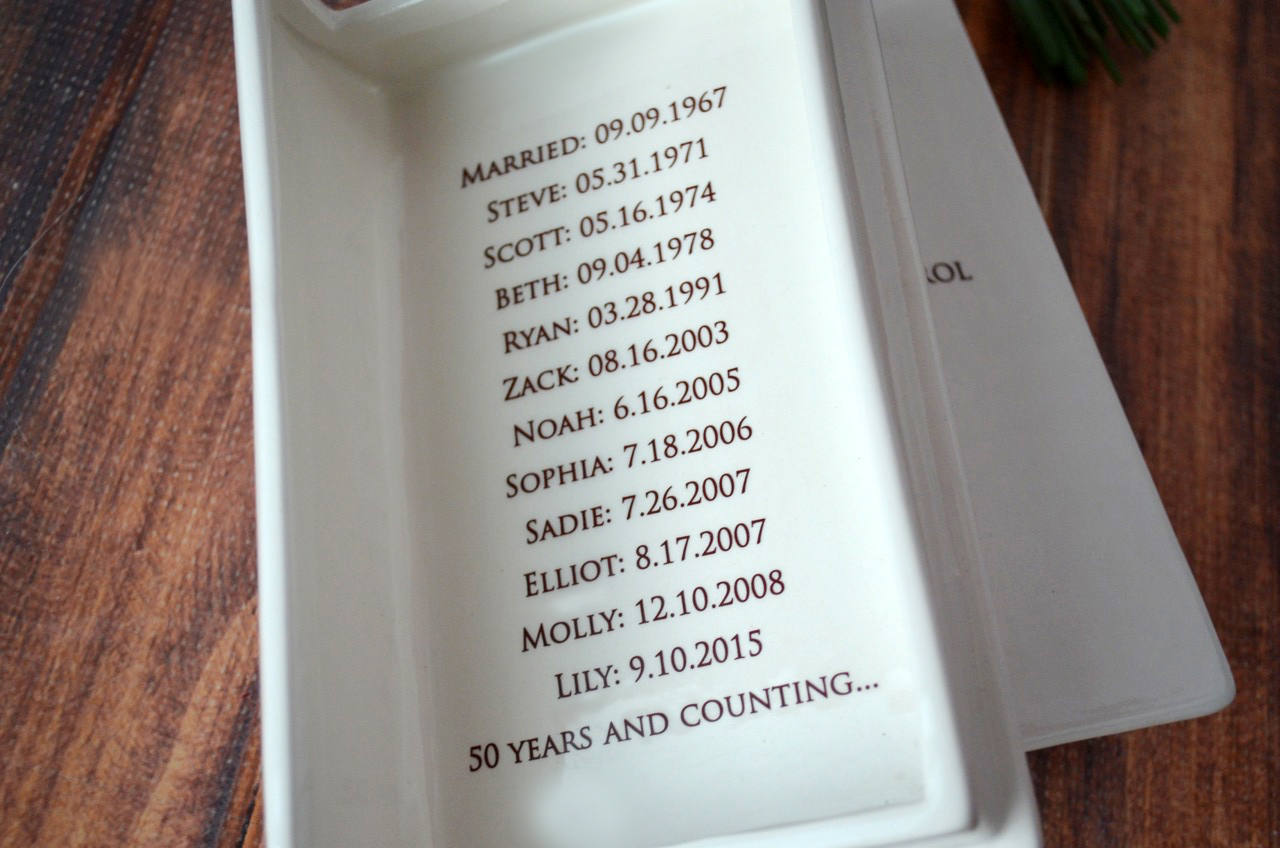 MARRIED: 09.09.1967
STEVE: 05.31.1971
SCOTT: 05.16.1974
BETH: 09.04.1978
RYAN: 03.28.1991
ZACK: 08.16.2003
NOAH: 6.16.2005
SOPHIA: 7.18.2006
SADIE: 7.26.2007
ELLIOT: 8.17.2007
MOLLY: 12.10.2008
LILY: 9.10.2015
50 YEARS AND COUNTING...